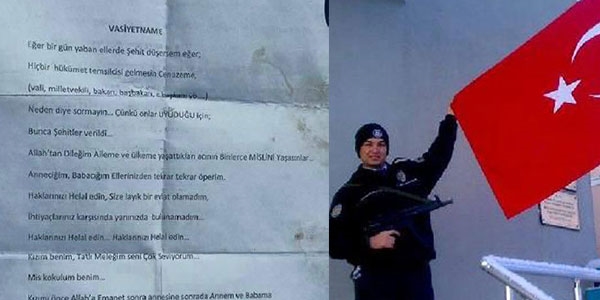 VASİYETNAME
Eğer bir gün yaban ellerde Şehit düşersem eğer;
Hiçbir hükümet temsilcisi gelmesin Cenazeme,
(vali, milletvekili, bakan, başbakan,
Neden diye sormayın... Çünkü onlar UYUDUĞU için;
Bunca Şehitler verildi...
Allah'tan Dileğim Aileme ve ülkeme yaşattıkları acının Binlerce MİSLİNİ Yaşasınlar...
Anneciğim, Babacığım Ellerinizden tekrar tekrar öperim.
Haklarınızı Helal edin, Size layık bir evlat olamadım,
İhtiyaçlarınız karşısında yanınızda bulunamadım...
Haklarınızı Helal edin... Haklarınızı Helal edin...
Kızım benim, Tatlı Meleğim seni Çok Seviyorum...
Mis kokulum benim...
Kızımı önce Allah'a Emanet sonra annesine sonrada Annem ve Babama